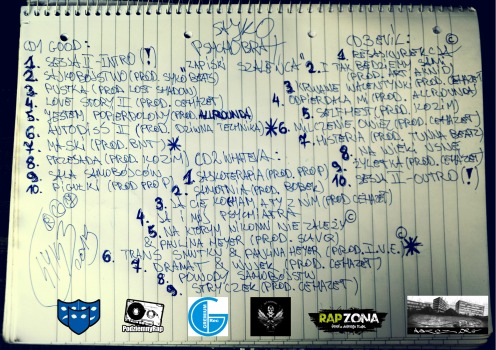 SAYKO
PSYCHOBRAT
"ZAPISKI SZALEŃCA"
CD1 GOOD:
1. SESJA II - INTRO (!)
2. SAYKOBÓJSTWO (PROD. SAYKO BEATS)
3. PUSTKA (PROD. LOST SHADOW)
4. LOVE STORY III (PROD. CEHAZET)
5. JESTEM POPIERDOLONY (PROD. ALLROUNDA)
6. AUTODISS II (PROD. DZIWNA TECHNIKA)
7. MASKI (PROD. BNT)
8. PRZESADA (PROD. KOZIM)
9. SALA SAMOBÓJCÓW
10. PIGUŁKI (PROD. PRÓP)
CD2 WHATEVA:
1. SAYKOTERAPIA (PROD. PRÓP)
2. SAMOTNIA (PROD. BOBEK)
3. JA CIĘ KOCHAM, A TY Z NIM (PROD. CEHAZET)
4. JA I MÓJ PSYCHIATRA
5. NA KTÓRYM NIKOMU NIE ZALEŻY
& PAULINA HEYER (PROD. SLAVQ)
6. TRANS SMUTKU & PAULINA HEYER (PROD. I.N.E.)
7. DRAMAT & WUJEK (PROD. CEHAZET)
8. POWODY SAMOBÓJSTW
9. STRYCZEK (PROD. CEHAZET)
CD3 EVIL:
1. RESUSCYREKCJA
2. I TAK BĘDZIEMY SAMI
3. KRWAWE WALENTYNKI (PROD. CEHAZET)
4. ODPIERDALA MI (PROD. ALLROUNDA)
5. SALTHEST (PROD. KOZIM)
6. MILCZENIE OWIEC (PROD. CEHAZET)
7. HISTERIA (PROD. TUNNA BEATZ)
8. NA WIEKI USNĘ
9. ŻYLETKA (PROD. CEHAZET)
10. SESJA II - OUTRO (!)
2015
PodziemnyRap
G
Rec
RAPZONA